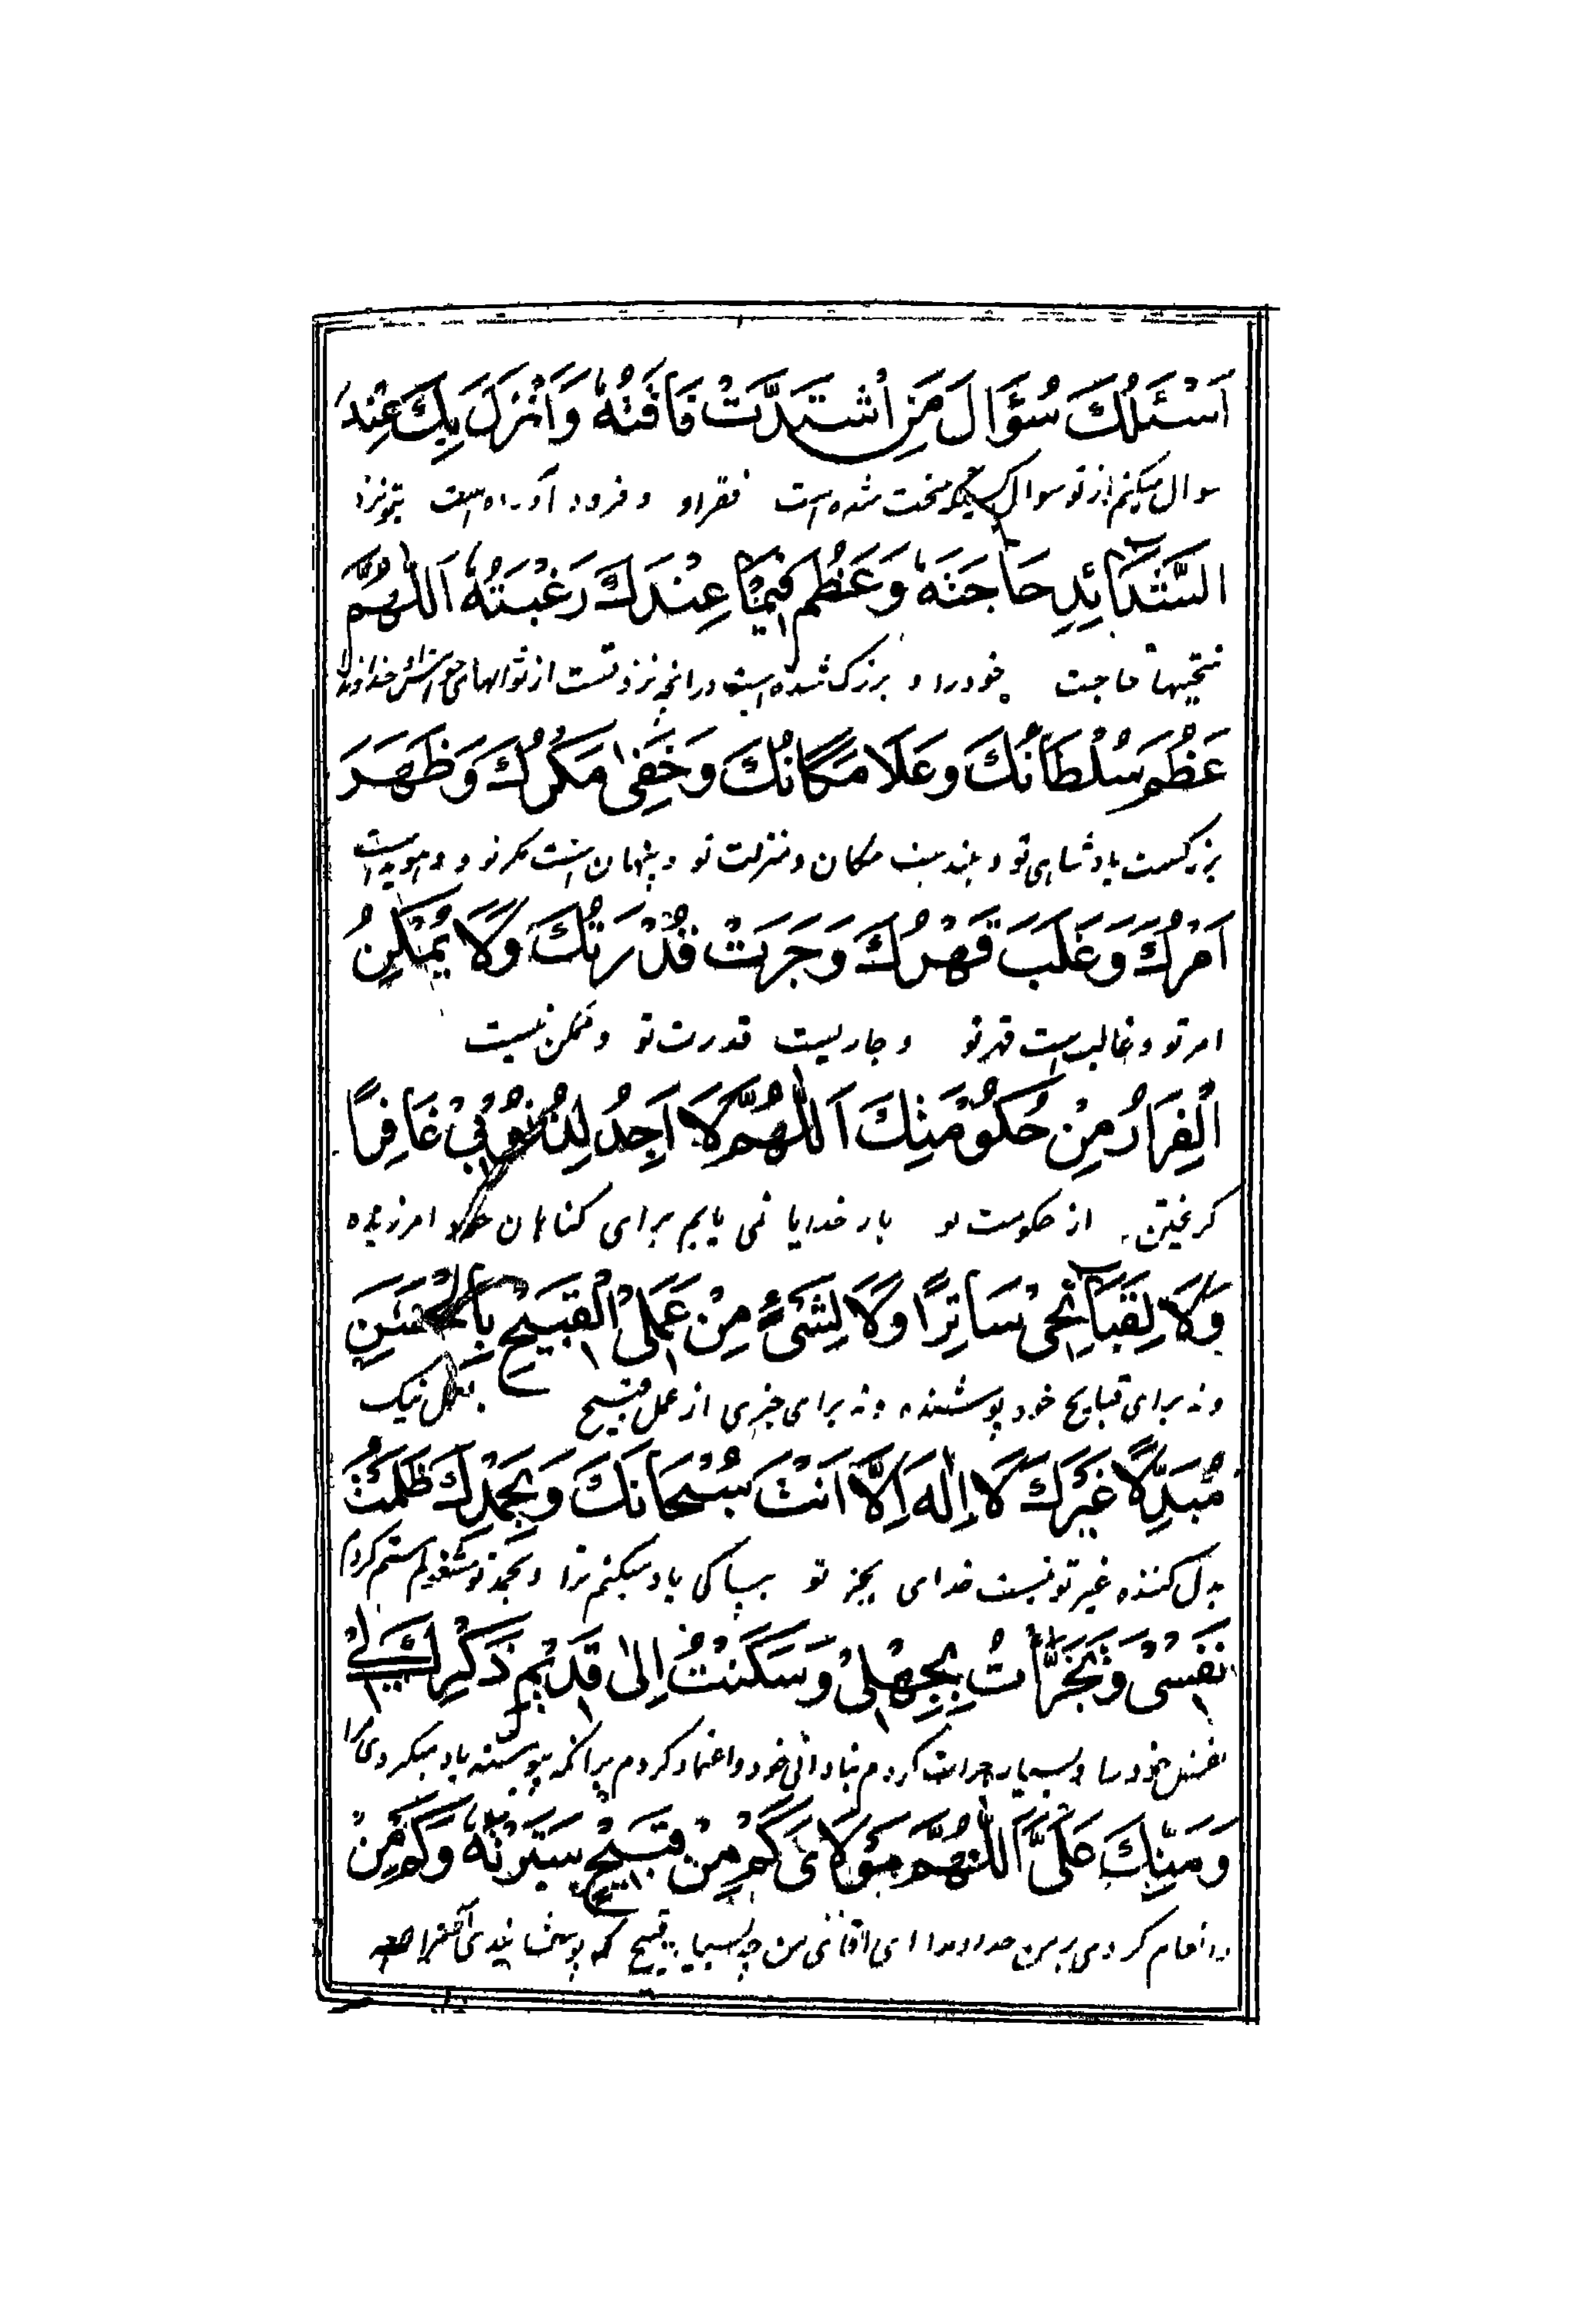 اَسْئَلُكَ سُؤَالَ مَنِ اشْتَدَّتْ فَاقَتُهُ وَاَنْزَلَ بِكَ عِنْدَ
سوال میکنم از تو سوال کسیکه سخت شده است فقر او و فرود آورده است بتو نزد
الشَّدَآئِدِ حَاجَتَهُ وَعَظُمَ فِيْمَا عِنْدَكَ رَغْبَتُهُ اَللّٰهُمَّ
سختیها حاجت خود را و بزرک شده است در انچه نزد تست از ثوابها خواهش خداوندا
عَظُمَ سُلْطَانُكَ وَعَلَا مَكَانُكَ وَخَفِیَ مَكْرُكَ وَظَهَرَ
بزرکست پادشاهی تو و بلند است مکان و منزلت تو و پنهان است مکر تو و هویدا است
اَمْرُكَ وَغَلَبَ قَهْرُكَ وَجَرَتْ قُدْرَتُكَ وَلَا يُمْكِنُ
امر تو و غالب است قهر تو و جاریست قدرت تو و ممکن نیست
الْفِرَارُ مِنْ حُكُوْمَتِكَ اَللّٰهُمَّ لَا اَجِدُ لِذُنُوْبِیْ غَافِرًا
کریختن از حکومت تو بار خدایا نمی یابم برای کناهان خود امرزنده
وَلَا لِقَبَآئِحِیْ سَاتِرًا وَلَا لِشَیْءٍ مِنْ عَمَلِیَ الْقَبِيْحِ بِالْحَسَنِ
و نه برای قبایح خود پوشنده و نه برای چیزی از عمل قبیح بعمل نیک
مُبَدِّلًا غَيْرَكَ لَا اِلٰهَ اِلَّا اَنْتَ سُبْحَانَكَ وَبِحَمْدِكَ ظَلَمْتُ
بدل کننده غیر تو نیست خدای بجز تو بپاکی یاد میکنم ترا و بحمد تو مشغولم ستم کردم
نَفْسِیْ وَتَجَرَّاْتُ بِجَهْلِیْ وَسَكَنْتُ اِلٰی قَدِيْمِ ذِكْرِكَ لِیْ
نفس خود را و بسیار جرات کردم بنادانی خود و اعتماد کردم برانکه پیوسته یاد میکردی مرا
وَمَنِّكَ عَلَیَّ اَللّٰهُمَّ مَوْلَایَ كَمْ مِنْ قَبِيْحٍ سَتَرْتَهُ وَكَمْ مِنْ
و انعام کردی بر من خداوندا ای اقای من چه بسیار قبیح که